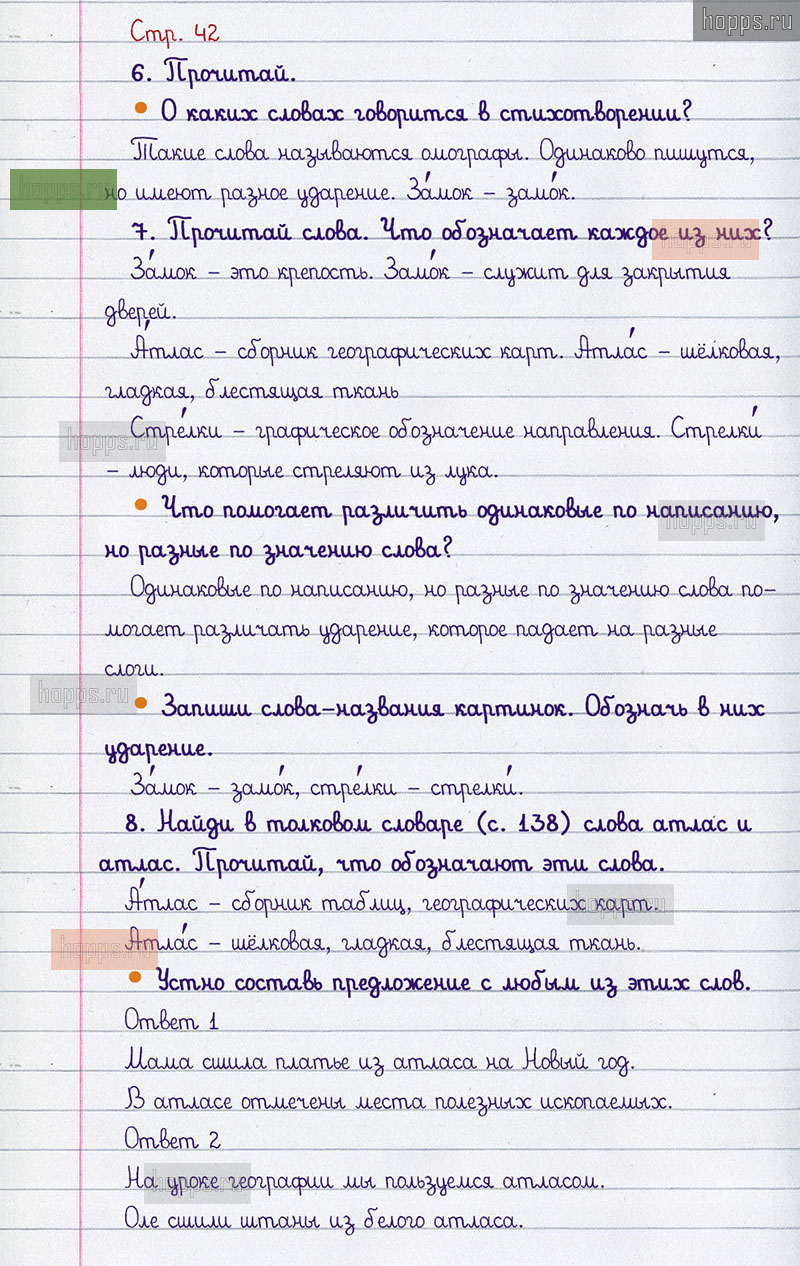 hopps.ru
Стр. 42
6. Прочитай.
• О каких словах говорится в стихотворении?
Такие слова называются омографы. Одинаково пишутся,
hopps.ru
но имеют разное ударение. За́мок – замо́к.
7. Прочитай слова. Что обозначает каждое из них?
hopps.ru
За́мок – это крепость. Замо́к – служит для закрытия
дверей.
А́тлас – сборник географических карт. Атла́с – шёлковая,
гладкая, блестящая ткань
hopps.ru
Стре́лки – графическое обозначение направления. Стрелки́
– люди, которые стреляют из лука.
• Что помогает различить одинаковые по написанию,
hopps.ru
но разные по значению слова?
Одинаковые по написанию, но разные по значению слова по-
могает различать ударение, которое падает на разные
слоги.
hopps.ru
• Запиши слова-названия картинок. Обозначь в них
ударение.
За́мок – замо́к, стре́лки – стрелки́.
8. Найди в толковом словаре (с. 138) слова атлас и
атлас. Прочитай, что обозначают эти слова.
А́тлас – сборник таблиц, географических карт.
hopps.ru
Атла́с – шёлковая, гладкая, блестящая ткань.
hopps.ru
• Устно составь предложение с любым из этих слов.
Ответ 1
Мама сшила платье из атласа на Новый год.
В атласе отмечены места полезных ископаемых.
Ответ 2
На уроке географии мы пользуемся атласом.
hopps.ru
Оле сшили штаны из белого атласа.